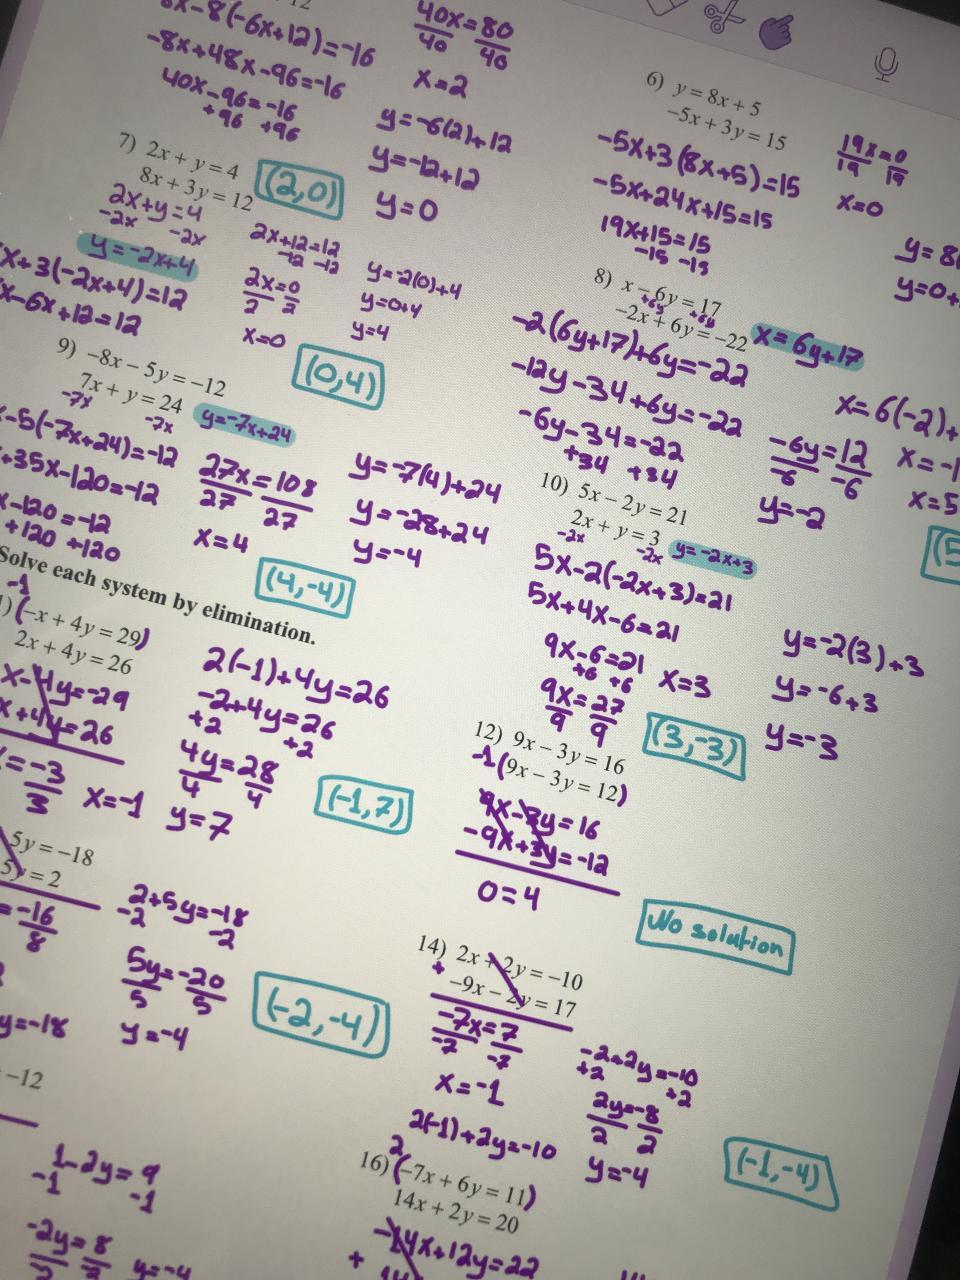 -8(-6x+12)=-16
-8x+48x-96=-16
40x-96=-16
+96 +96
40x=80
40 40
x=2
y=-6(2)+12
y=-12+12
y=0
(2,0)
6) y = 8x + 5
-5x + 3y = 15
-5x+3(8x+5)=15
-5x+24x+15=15
19x+15=15
-15 -15
19x=0
19 19
x=0
7) 2x + y = 4
8x + 3y = 12
2x+y=4
-2x -2x
y=-2x+4
x+3(-2x+4)=12
x-6x+12=12
2x+12=12
-12 -12
2x=0
2 2
x=0
y=-2(0)+4
y=0+4
y=4
(0,4)
8) x - 6y = 17
+6y +6y
-2x + 6y = -22
x=6y+17
-2(6y+17)+6y=-22
-12y-34+6y=-22
-6y-34=-22
+34 +34
-6y=12
-6 -6
y=-2
x=6(-2)+
9) -8x - 5y = -12
7x + y = 24
-7x -7x
y=-7x+24
x-5(-7x+24)=-12
+35x-120=-12
x-120=-12
+120 +120
27x=108
27 27
x=4
y=-7(4)+24
y=-28+24
y=-4
(4,-4)
10) 5x - 2y = 21
2x + y = 3
-2x -2x
y=-2x+3
5x-2(-2x+3)=21
5x+4x-6=21
9x-6=21
+6 +6
9x=27
9 9
x=3
y=-2(3)+3
y=-6+3
y=-3
(3,-3)
Solve each system by elimination.
-1
1) (-x + 4y = 29)
2x + 4y = 26
x-4y=-29
x+4y=26
=-3
3
x=-1
2(-1)+4y=26
-2+4y=26
+2 +2
4y=28
4 4
y=7
(-1,7)
12) 9x - 3y = 16
-1(9x - 3y = 12)
9x-3y=16
-9x+3y=-12
0=4
No solution
5y = -18
5y = 2
=-16
8
2+5y=-18
-2 -2
5y=-20
5 5
y=-4
y=-18
(-2,-4)
14) 2x + 2y = -10
+ -9x - 2y = 17
-7x=7
-7 -7
x=-1
2(-1)+2y=-10
-2+2y=-10
+2 +2
2y=-8
2 2
y=-4
(-1,-4)
-12
1-2y=9
-1 -1
-2y=8
-2 -2
y=-4
2
16) (-7x + 6y = 11)
14x + 2y = 20
-14x+12y=22
+